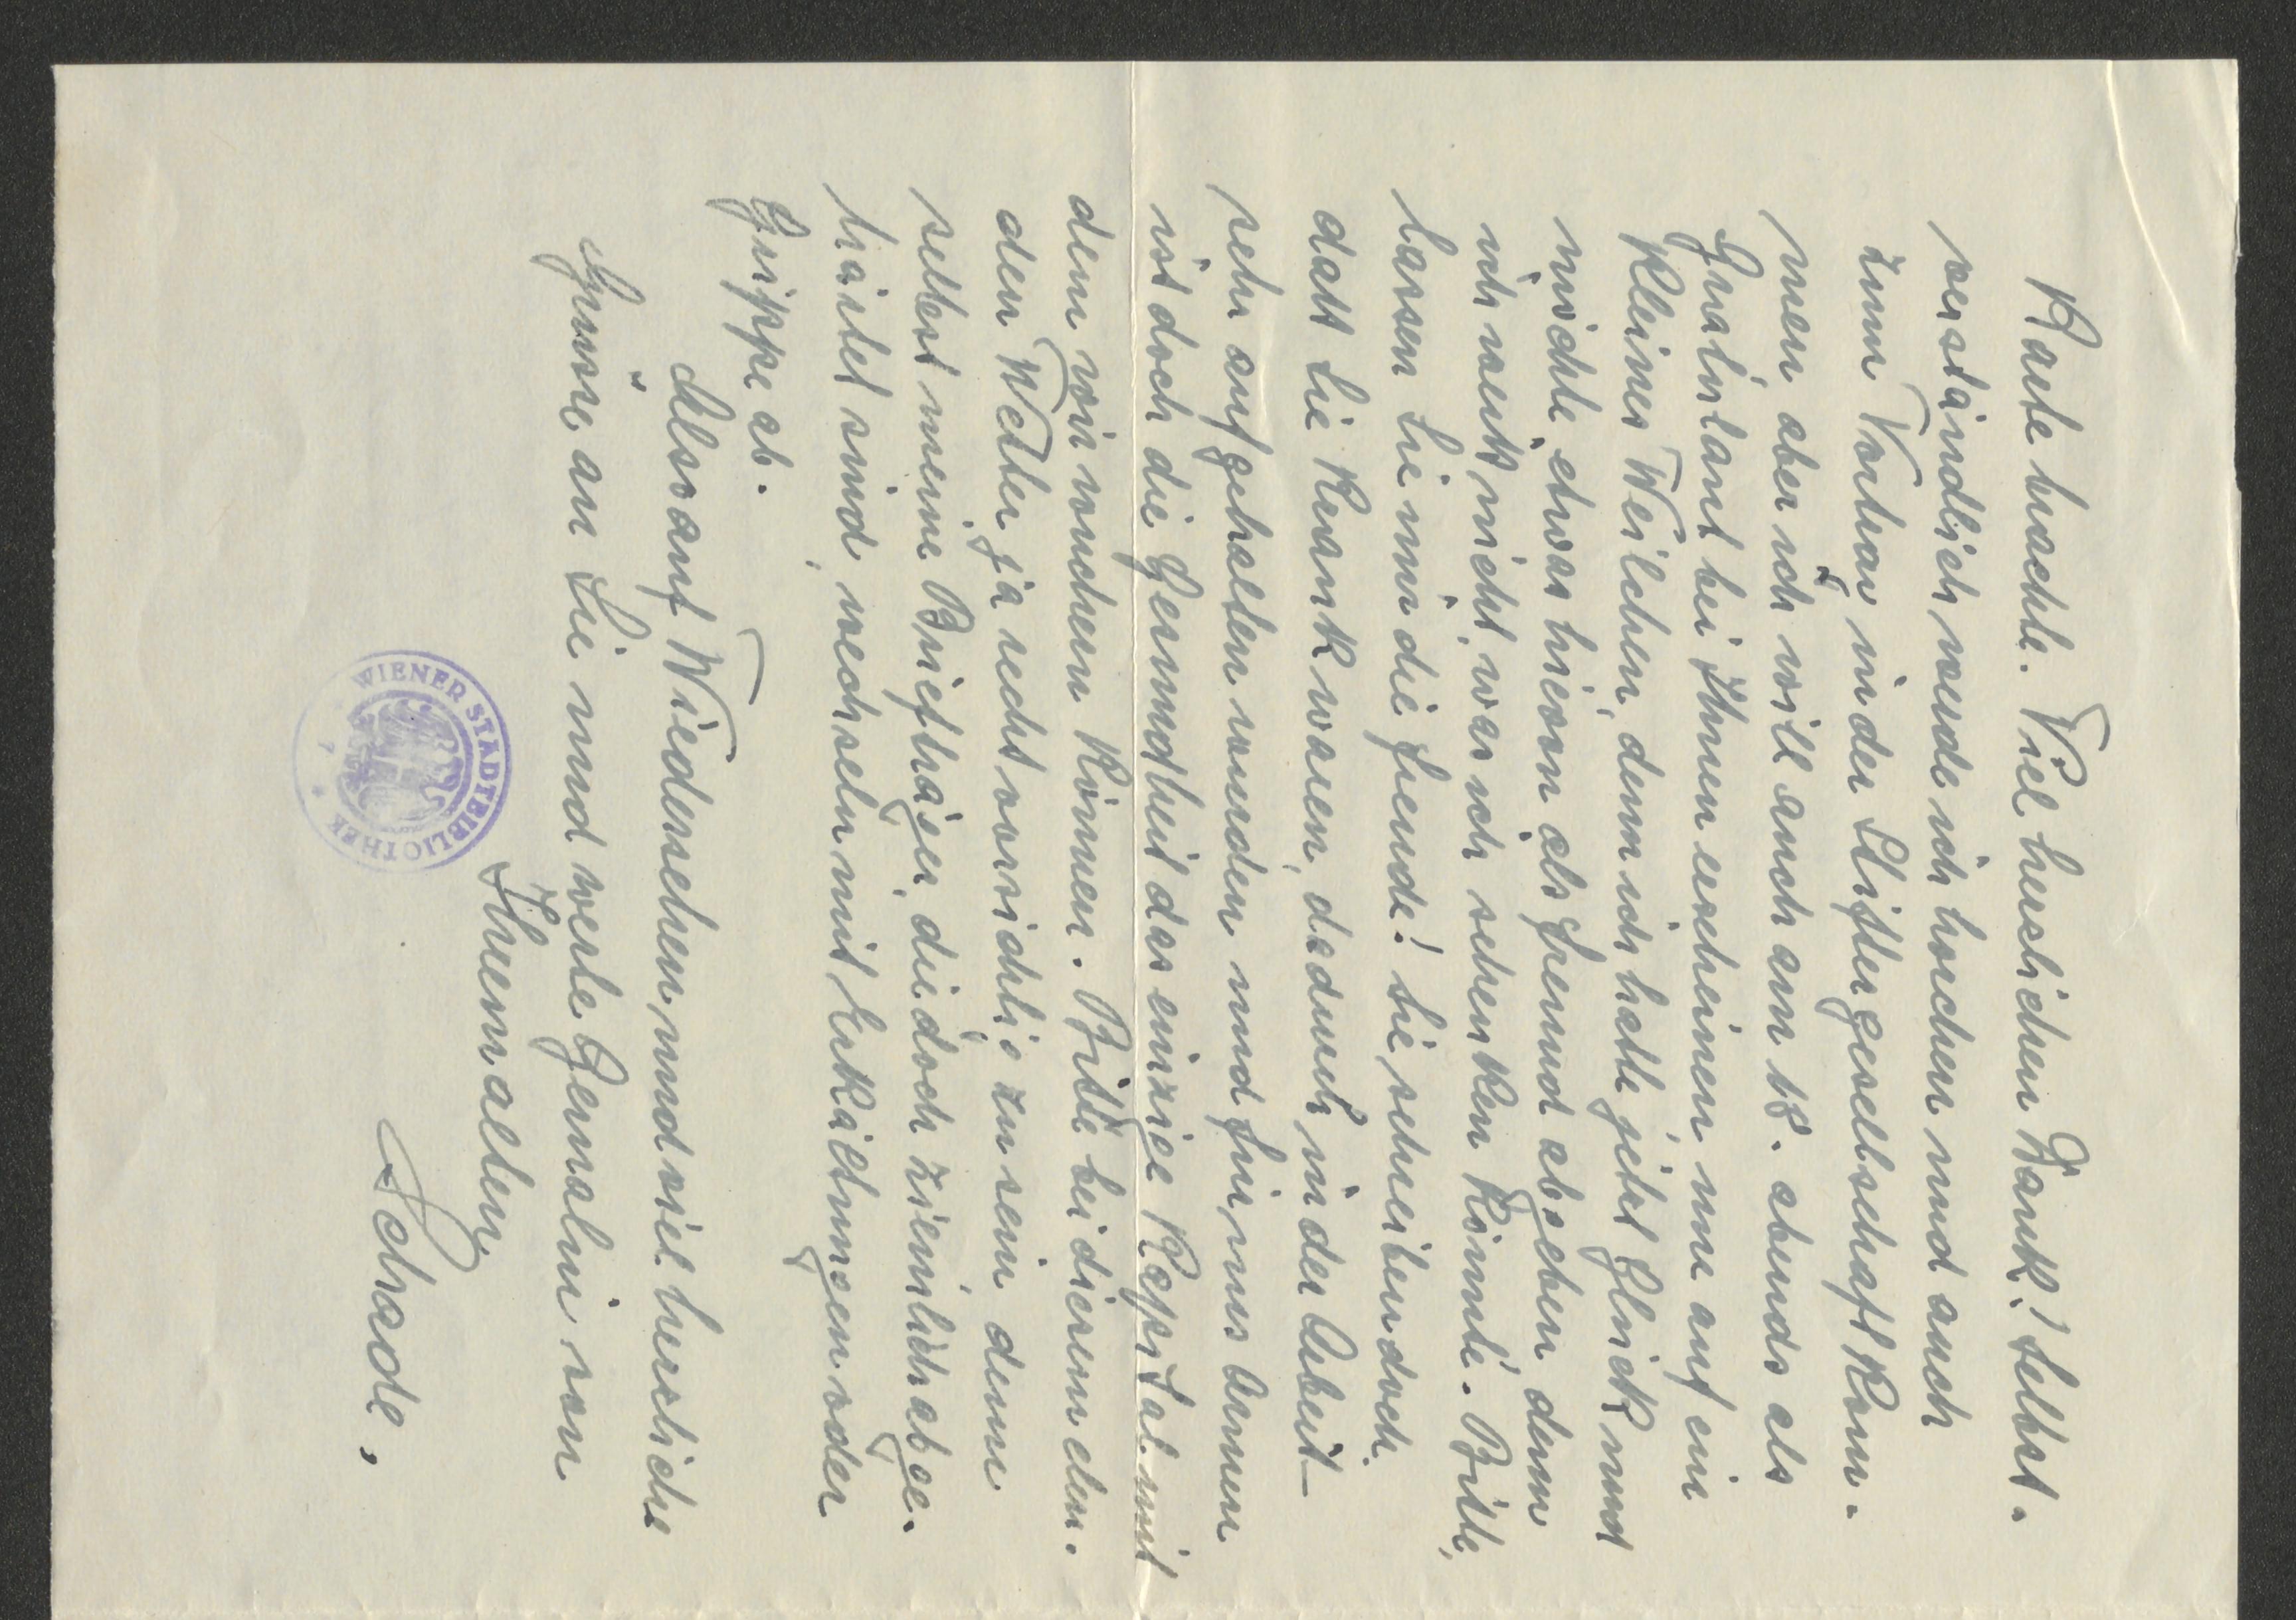 Karte brachte. Viel herzlichen Dank! Selbst-
verständlich werde ich horchen und auch
zum Vortrag in der Stiftergesellschaft kom-
men aber ich will auch am 18. abends als
Gratulant bei Ihnen erscheinen nur auf ein
kleines Weilchen, denn ich hatte jetzt Glück und
möchte etwas hievon als Freund abgeben denn
ich weiß nicht, was ich schenken könnte. Bitte,
lassen Sie mir die Freude! Sie schreiben doch
daß Sie krank waren, dadurch in der Arbeit
sehr aufgehalten wurden und für uns Armen
ist doch die Gesundheit das einzige Kapital mit
dem wir wuchern können. Bitte bei diesem elen-
den Wetter ja recht vorsichtig zu sein denn
selbst meine Briefträger, die doch ziemlich abge-
härtet sind, wechseln mit Erkältungen oder
Grippe ab.
Also auf Wiedersehen und viel herzliche
Grüsse an Sie und werte Gemalin von
Ihrem alten
Schade.
WIENER STADTBIBLIOTHEK